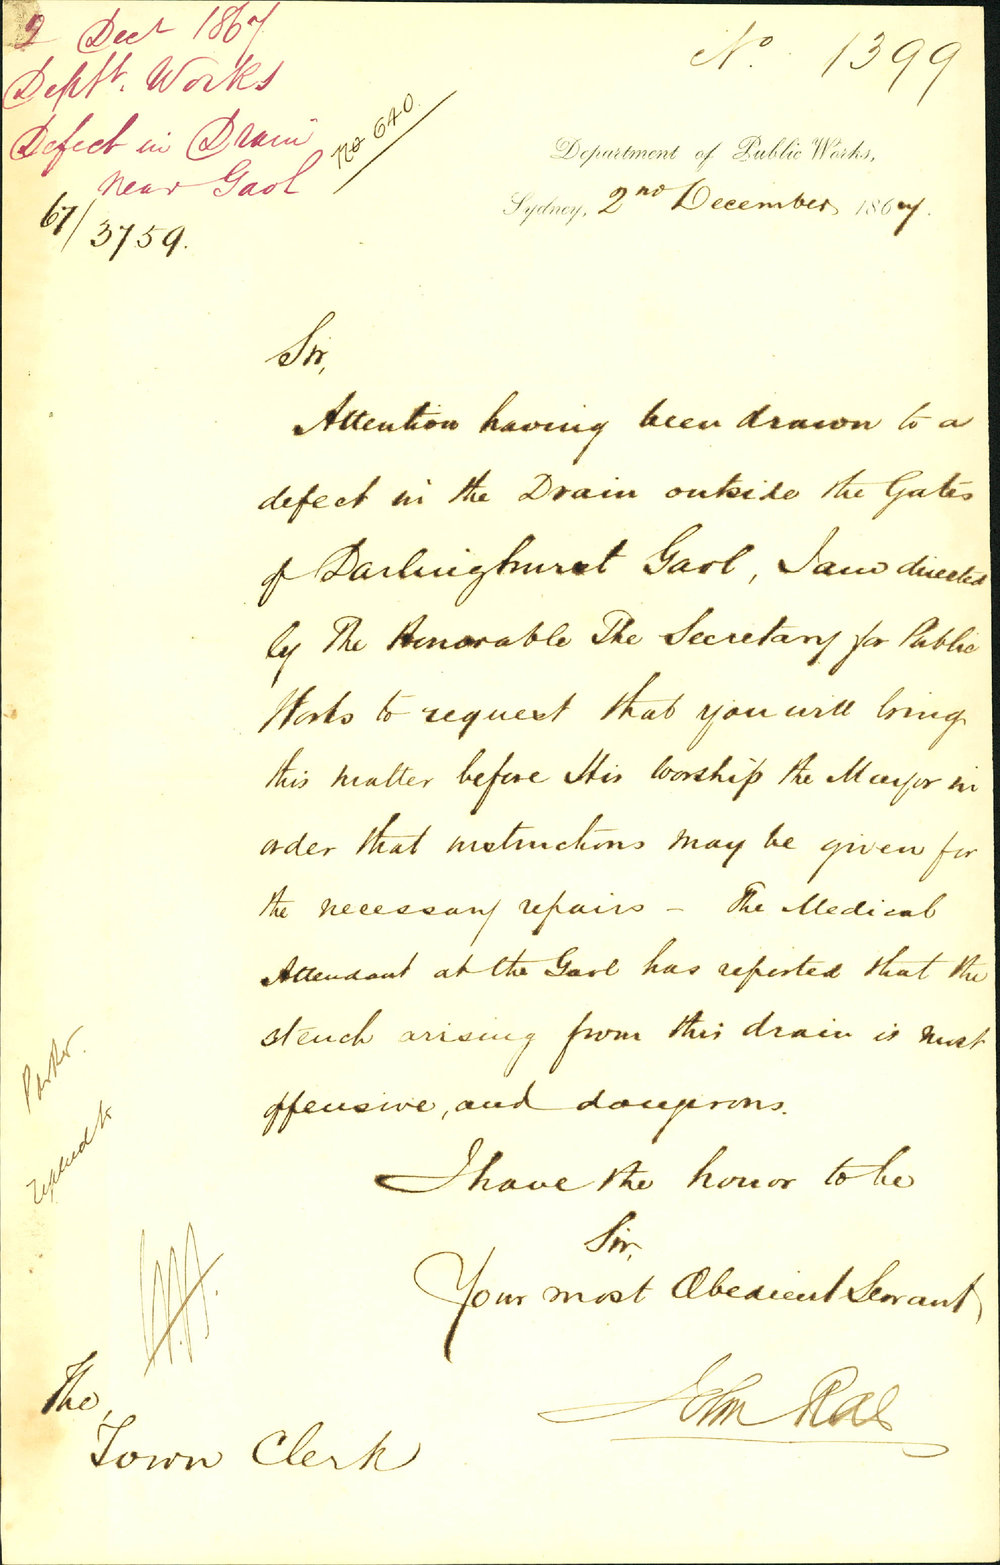 2 Decr 1867
Deptt. Works
Defect in Drain
near Gaol
67/3759.
No 640.
No. 1399
Department of Public Works,
Sydney, 2nd December 1867.
Sir,
Attention having been drawn to a
defect in the Drain outside the Gates
of Darlinghurst Gaol, I am directed
by The Honorable The Secretary for Public
Works to request that you will bring
this matter before His Worship the Mayor in
order that instructions may be given for
the necessary repairs – The Medical
Attendant at the Gaol has reported that the
stench arising from this drain is most
offensive, and dangerous.
I have the honor to be
Sir,
Your most Obedient Servant
John Rae
The
Town Clerk